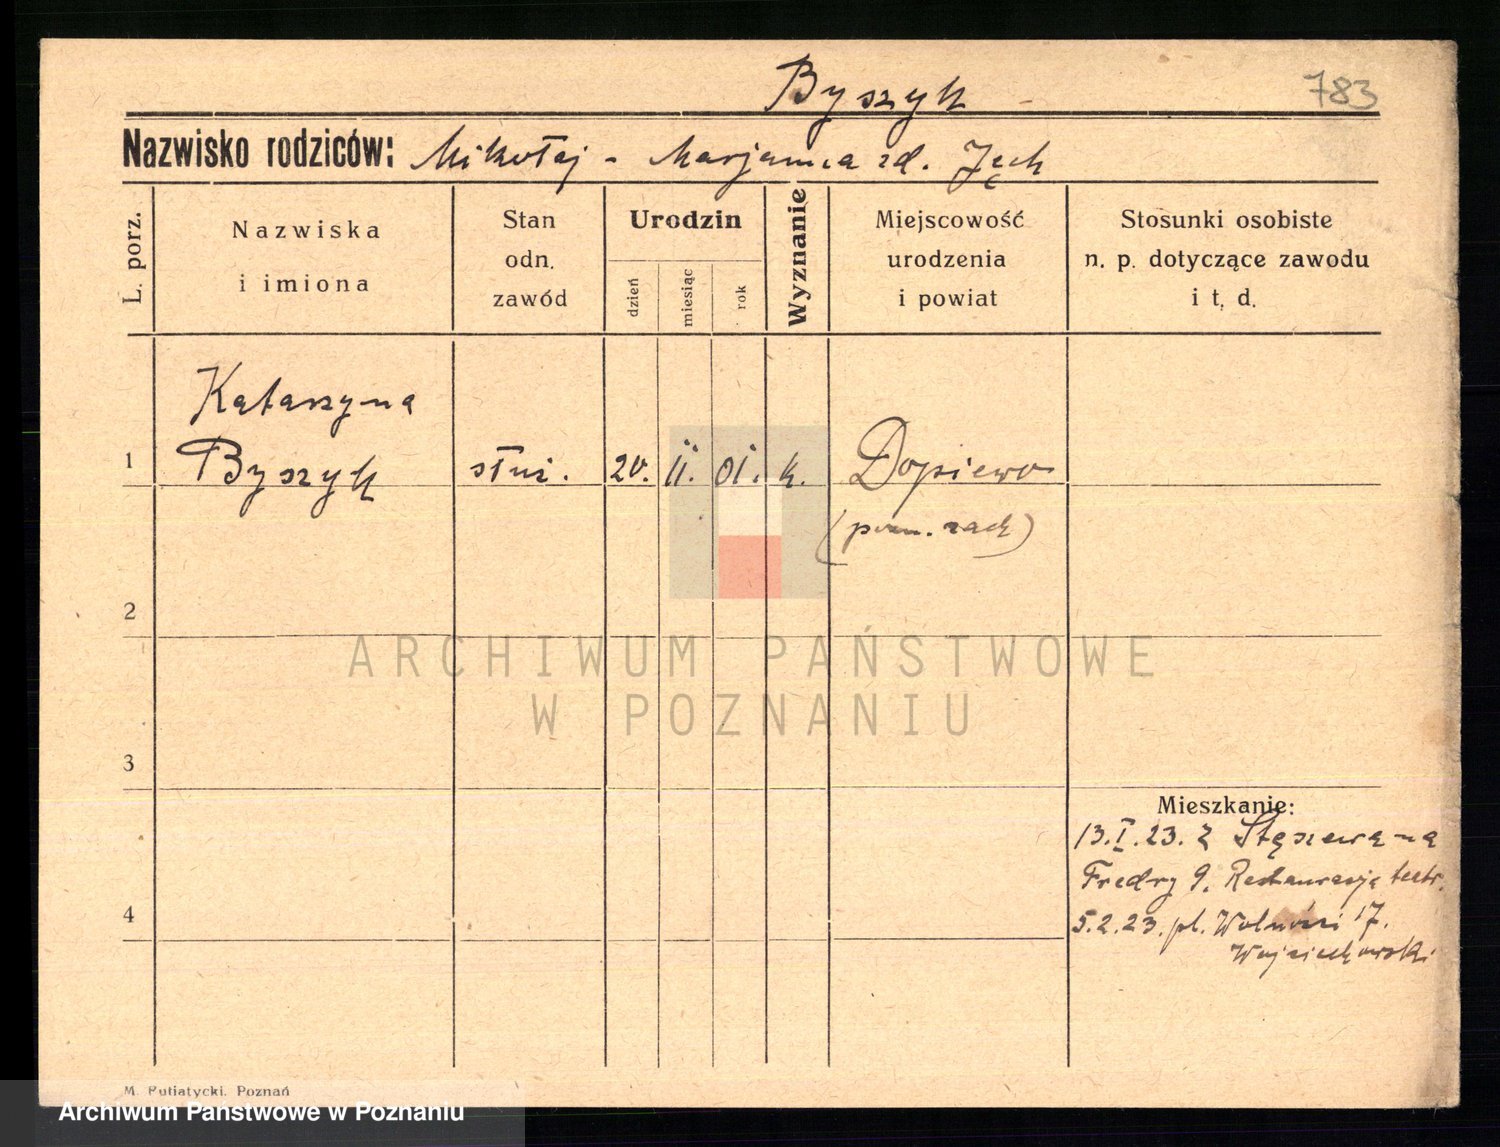 Byszyk
783
Nazwisko rodziców: Mikołaj - Marjanna zd. Jęch
L. porz.
Nazwiska
i imiona
Stan
odn.
zawód
Urodzin
dzień
miesiąc
rok
Wyznanie
Miejscowość
urodzenia
i powiat
Stosunki osobiste
n. p. dotyczące zawodu
i t. d.
Katarzyna
1 Byszyk służ. 20. 11. 01. k. Dopiewo
(pozn. zach)
2
ARCHIWUM PAŃSTWOWE
W POZNANIU
3
Mieszkanie:
13.I.23. z Stęszewa na
Fredry 9. Restauracja teatr.
4
5.2.23. pl. Wolności 17.
Wojciechowski
M. Putiatycki, Poznań
Archiwum Państwowe w Poznaniu